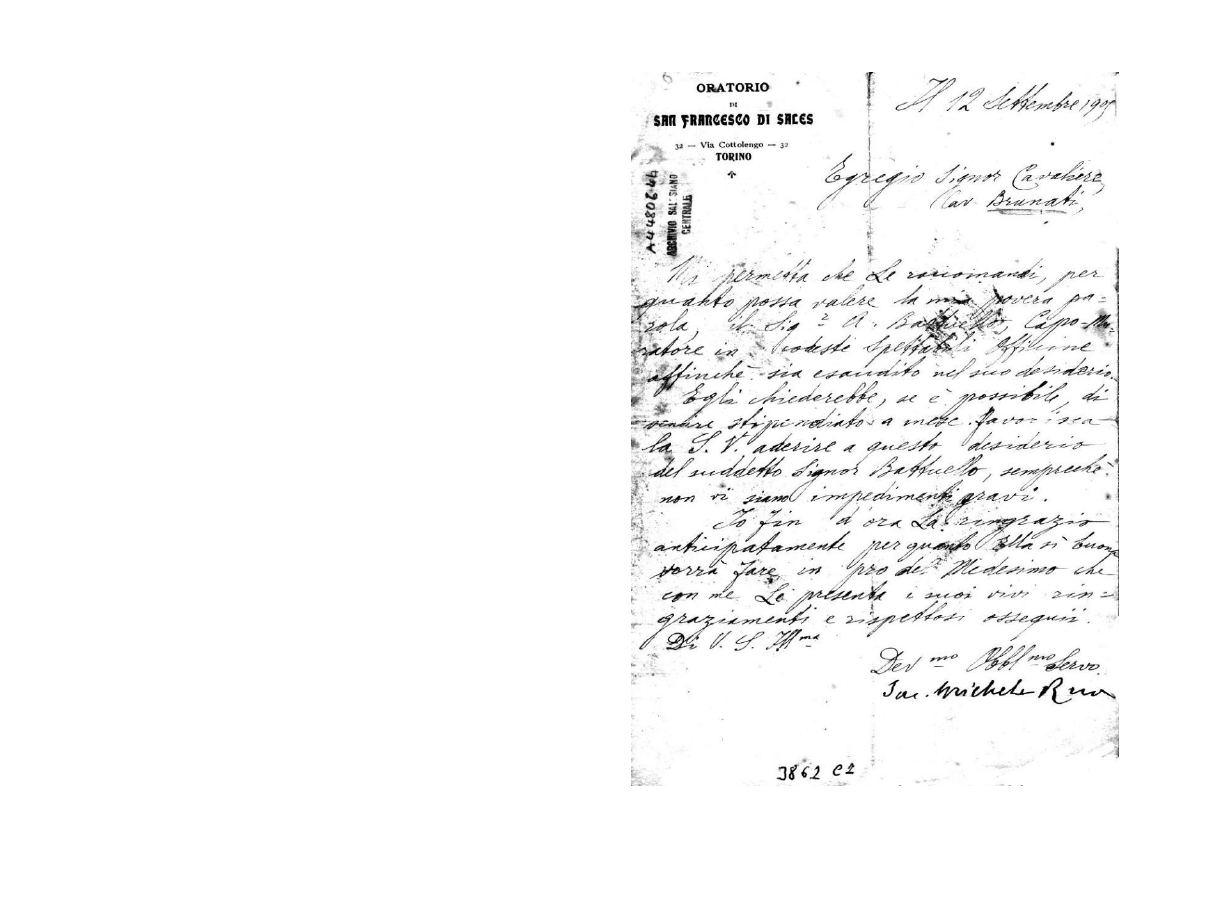 ORATORIO
DI
SAN FRANCESCO DI SALES
32 — Via Cottolengo — 32
TORINO
Il 12 Settembre
A4480644
ARCHIVIO SALESIANO
CENTRALE
Egregio Signor Cavaliere,
Cav. Brunati,
Mi permetta che Le raccomandi, per
quanto possa valere la mia povera pa=
rola, il Sigr A. Battuello, Capo-Mu-
ratore in codeste Spettabili Officine
affinchè sia esaudito nel suo desiderio.
Egli chiederebbe, se è possibile, di
venire stipendiato a mese. Favorisca
la S. V. aderire a questo desiderio
del suddetto Signor Battuello, sempreché
non vi siano impedimenti gravi.
Io fin d'ora La ringrazio
anticipatamente per quanto Ella sì buona
vorrà fare in pro del Medesimo che
con me Le presenta i suoi vivi rin=
graziamenti e rispettosi ossequii.
Di V. S. Illma
Devmo Obblmo Servo
Sac. Michele Rua
3862 C2